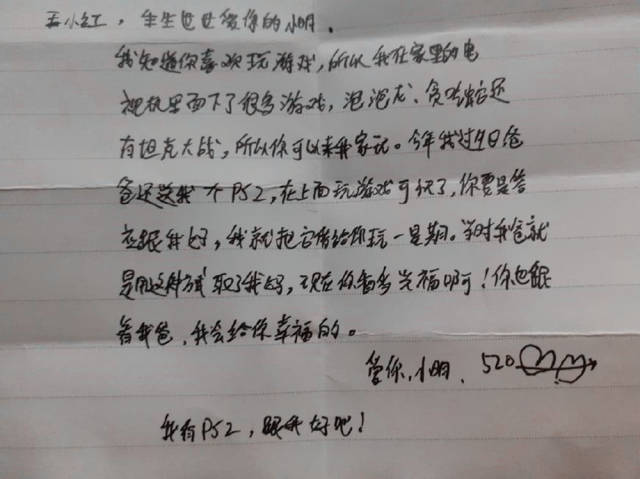 王小红，生生世世爱你的小明，
我知道你喜欢玩游戏，所以我在家里的电
视机里面下了很多游戏，泡泡龙、贪吃蛇还
有坦克大战，所以你可以来我家玩。今年我过生日爸
爸还送我一个PS2，在上面玩游戏可快了，你要是答
应跟我好，我就把它借给你玩一星期。当时我爸就
是用这种方式取了我妈，现在你看多幸福啊！你也跟
着我爸，我会给你幸福的。
爱你，小明，520
我有PS2，跟我好吧！